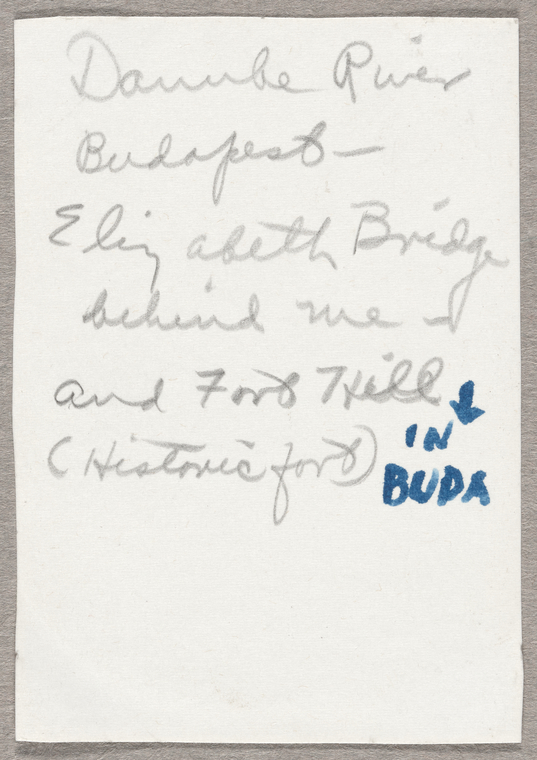 Danube River
Budapest —
Elizabeth Bridge
behind me —
and Fort Hill ↓
(Historic fort) IN
BUDA